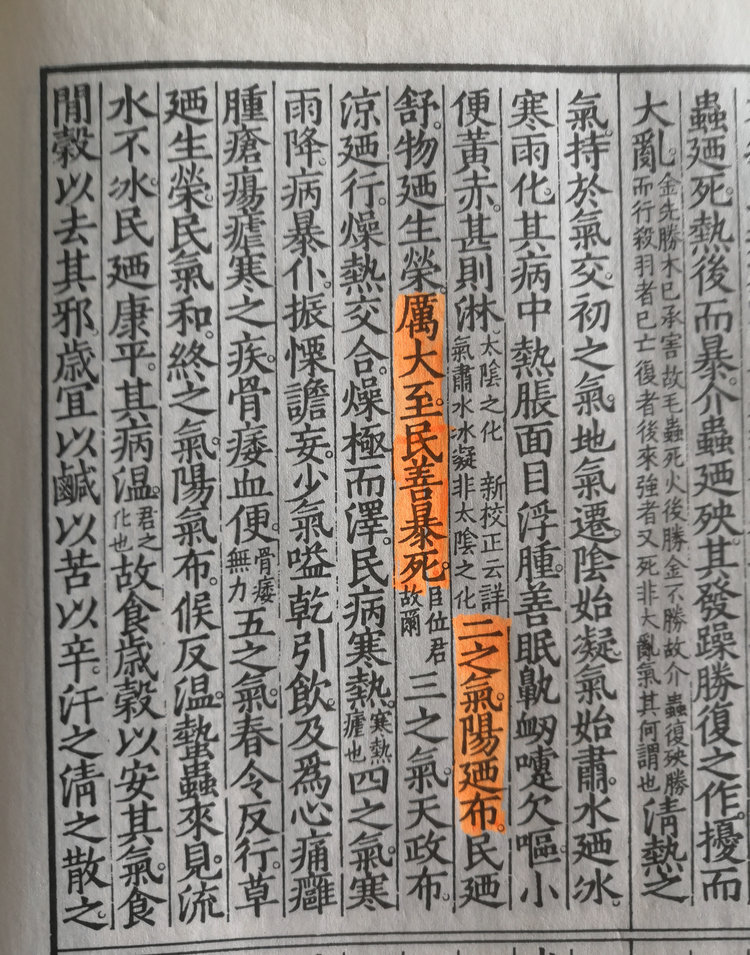 蟲廼死。熱後而暴。介蟲廼殃。其發躁。勝復之作。擾而
大亂。金先勝木已承害故毛蟲死火後勝金不勝故介蟲復殃勝而行殺羽者已亡復者後來強者又死非大亂氣其何謂也清熱之
氣。持於氣交。初之氣。地氣遷。陰始凝。氣始肅。水廼冰。
寒雨化。其病中熱脹面目浮腫善眠鼽衂嚏欠嘔。小
便黃赤。甚則淋。太陰之化 新校正云詳氣肅水冰凝非太陰之化二之氣。陽廼布。民廼
舒。物廼生榮。厲大至。民善暴死。臣位君故爾三之氣。天政布。
涼廼行。燥熱交合。燥極而澤。民病寒熱。寒熱瘧也四之氣。寒
雨降。病暴仆。振慄譫妄。少氣嗌乾引飲。及爲心痛癰
腫瘡瘍瘧寒之疾。骨痿血便。骨痿無力五之氣。春令反行。草
廼生榮。民氣和。終之氣。陽氣布。候反溫。蟄蟲來見。流
水不冰。民廼康平。其病溫。君之化也故食歲穀以安其氣。食
閒穀以去其邪。歲宜以鹹以苦以辛。汗之清之散之。